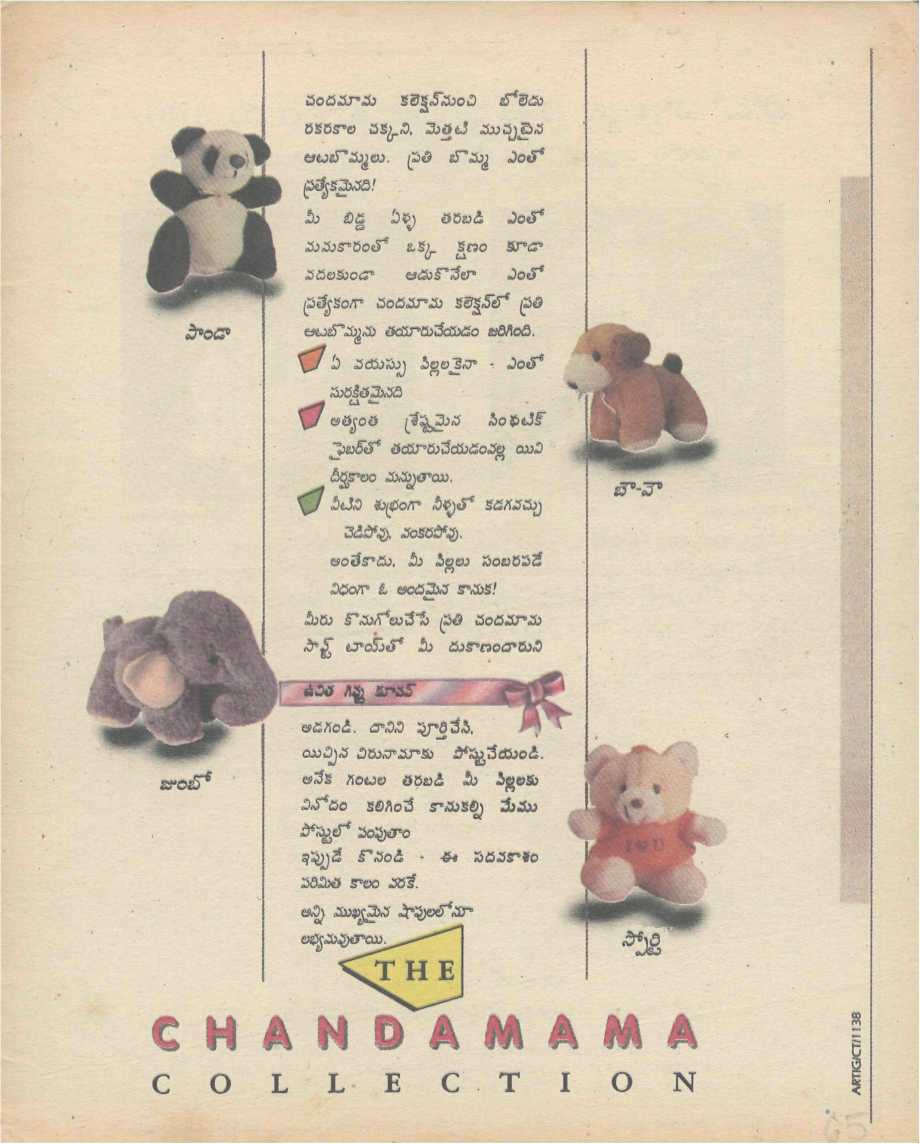 చందమామ కలెక్షన్‌నుంచి బోలెడు
రకరకాల చక్కని, మెత్తటి ముచ్చటైన
ఆటబొమ్మలు. ప్రతి బొమ్మ ఎంతో
ప్రత్యేకమైనది!
మీ బిడ్డ ఏళ్ళ తరబడి ఎంతో
మమకారంతో ఒక్క క్షణం కూడా
వదలకుండా ఆడుకొనేలా ఎంతో
ప్రత్యేకంగా చందమామ కలెక్షన్‌లో ప్రతి
ఆటబొమ్మను తయారుచేయడం జరిగింది.
ఏ వయస్సు పిల్లలకైనా - ఎంతో
సురక్షితమైనది
అత్యంత శ్రేష్టమైన సింథటిక్
ఫైబర్‌తో తయారుచేయడంవల్ల యివి
దీర్ఘకాలం మన్నుతాయి.
వీటిని శుభ్రంగా నీళ్ళతో కడగవచ్చు
చెడిపోవు, వంకరపోవు.
అంతేకాదు, మీ పిల్లలు సంబరపడే
విధంగా ఓ అందమైన కానుక!
మీరు కొనుగోలుచేసే ప్రతి చందమామ
సాఫ్ట్ టాయ్‌తో మీ దుకాణందారుని
ఉచిత గిఫ్ట కూపన్
అడగండి. దానిని పూర్తిచేసి,
యిచ్చిన చిరునామాకు పోస్టుచేయండి.
అనేక గంటల తరబడి మీ పిల్లలకు
వినోదం కలిగించే కానుకల్ని మేము
పోస్టులో పంపుతాం
ఇప్పుడే కొనండి - ఈ సదవకాశం
పరిమిత కాలం వరకే.
అన్ని ముఖ్యమైన షాపులలోనూ
లభ్యమవుతాయి.
పాండా
బౌ-వౌ
జుంబో
I ♥ U
స్పోర్టి
THE
CHANDAMAMA
COLLECTION
ARTIG/CT/1138